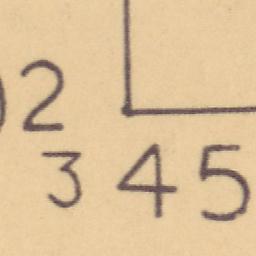 2
3 4 5